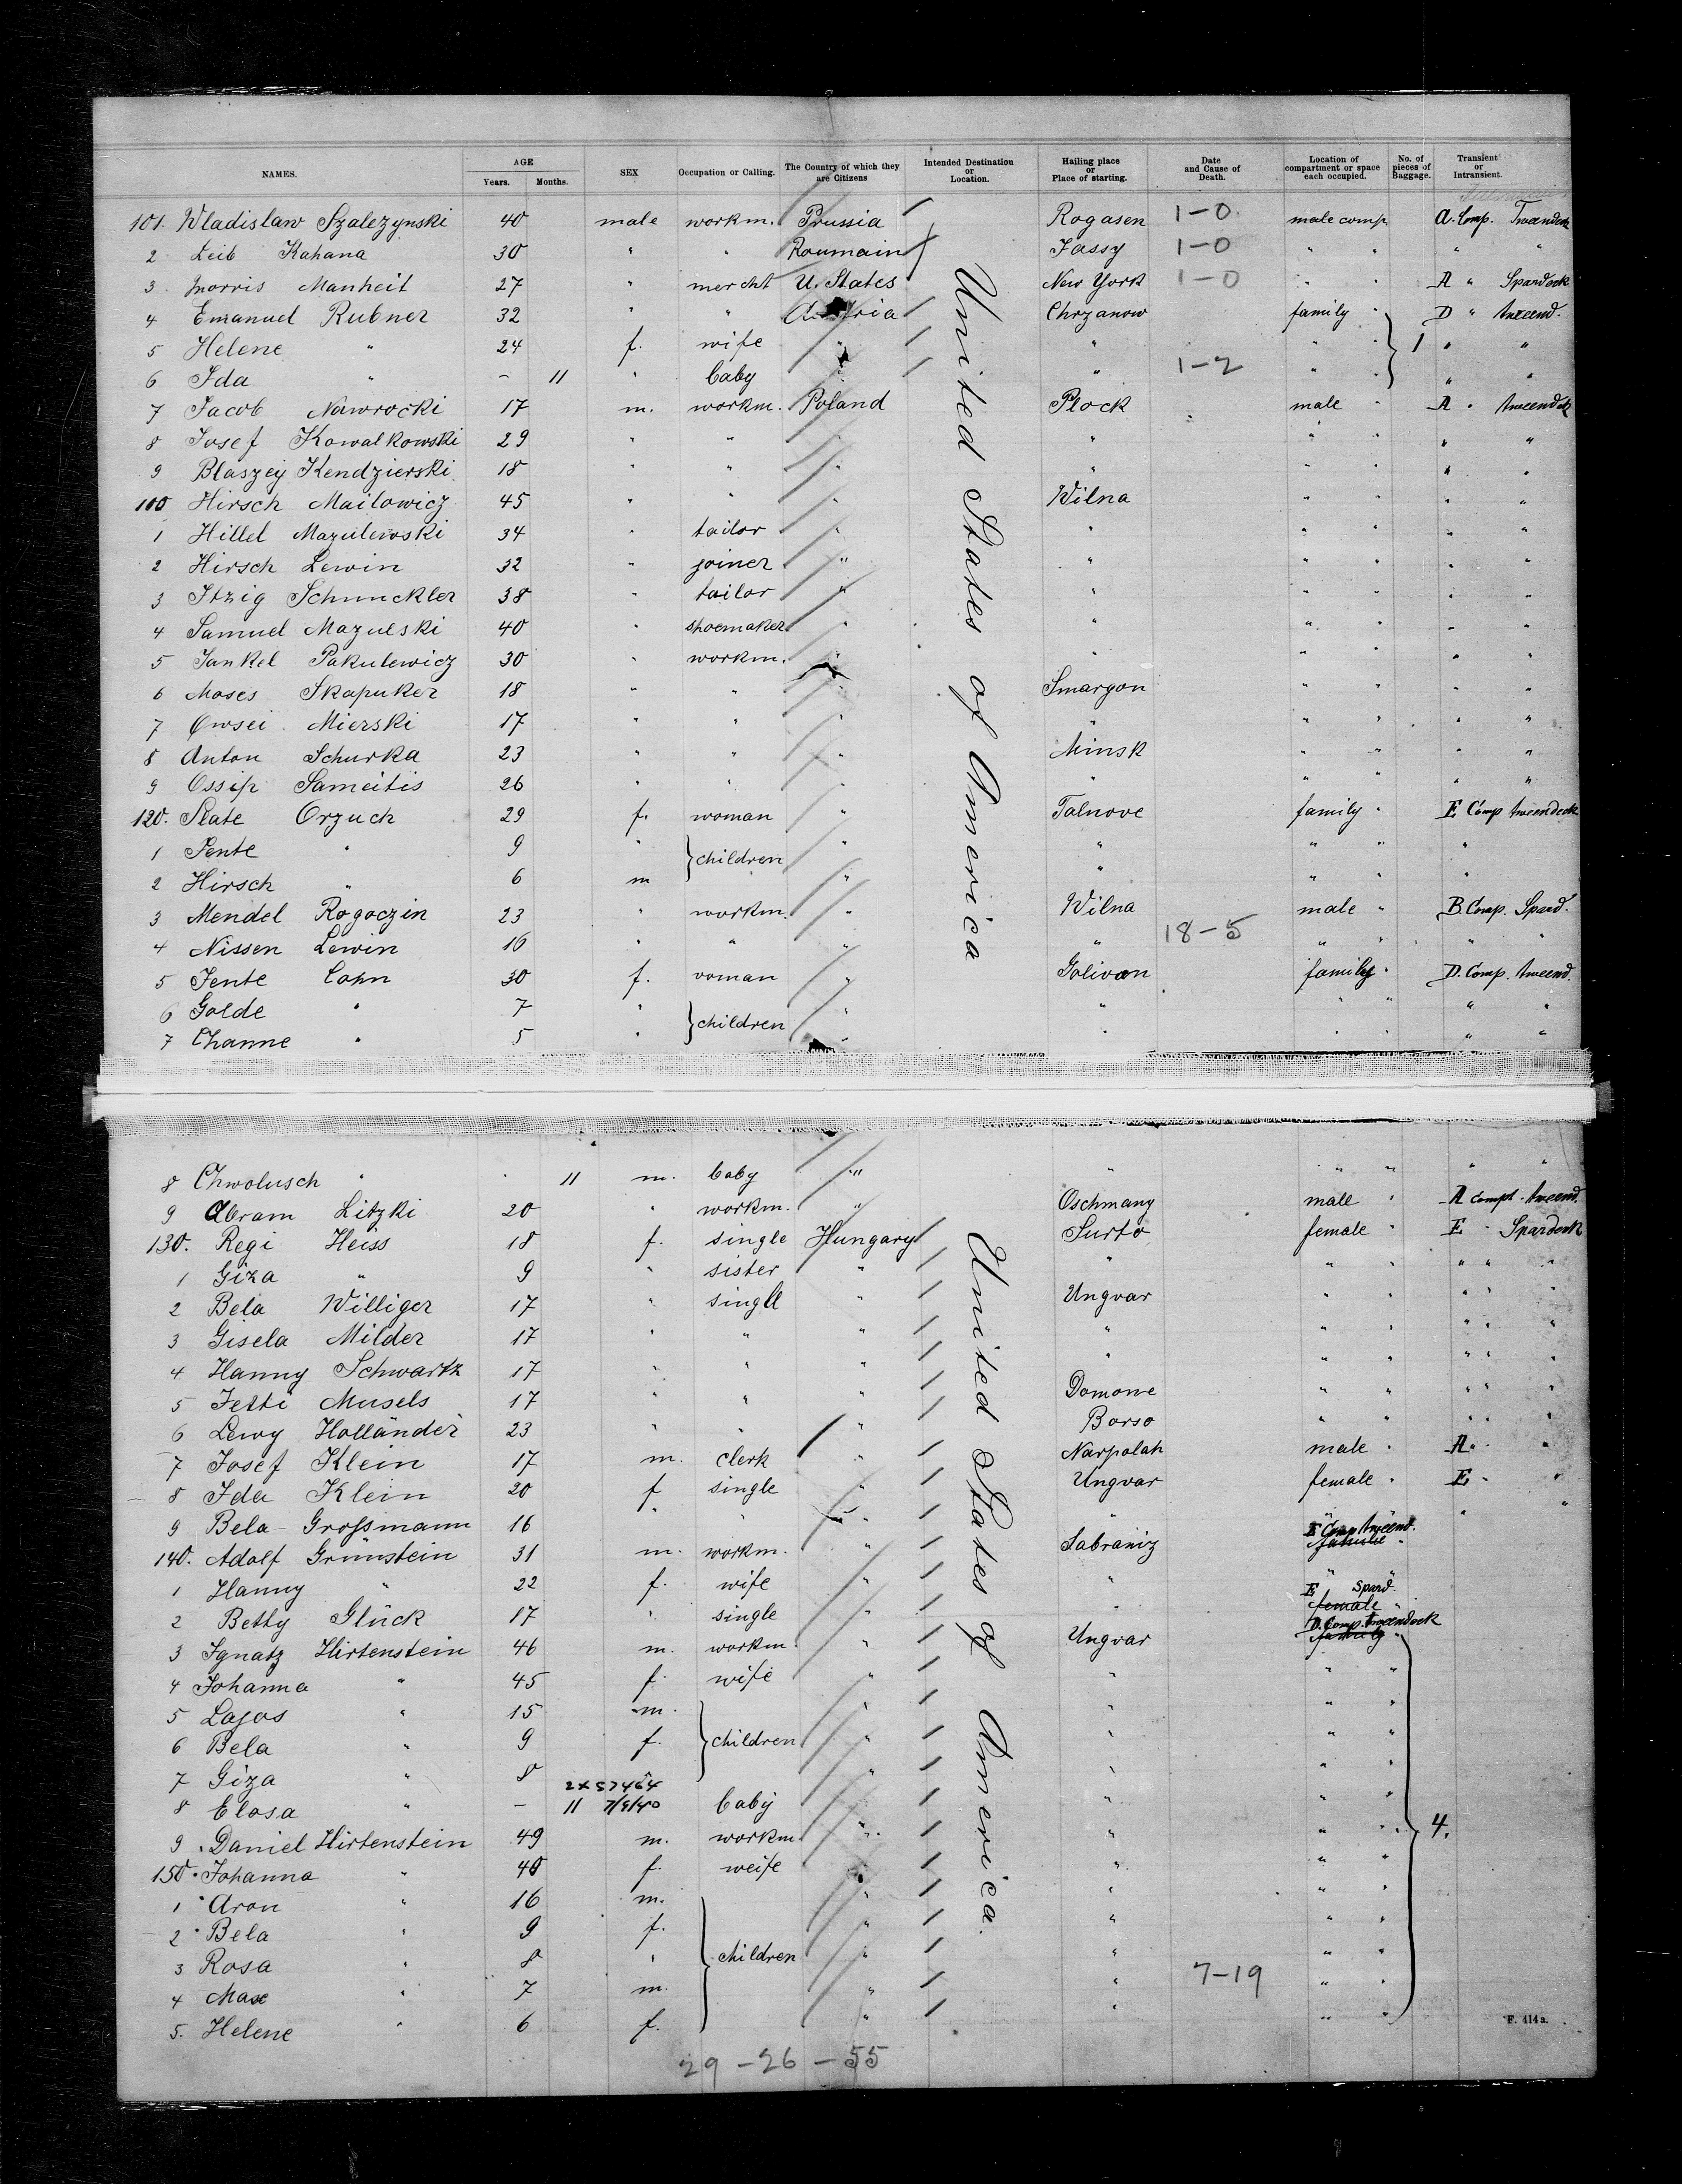 NAMES. AGE Years. Months. SEX Occupation or Calling. The Country of which they are Citizens Intended Destination or Location. Hailing place or Place of starting. Date and Cause of Death. Location of compartment or space each occupied. No. of pieces of Baggage. Transient or Intransient.
101. Wladislaw Szalezynski 40 male workm. Prussia Rogasen 1-0 male comp. A. Comp. Tweendeck
2 Leib Kahana 30 " " Roumain Jassy 1-0 " " " "
3 Morris Manheit 27 " mercht U. States New York 1-0 " " A " Spardeck
4 Emanuel Rubner 32 " " Austria Chrzanow family " D " tweend.
5 Helene " 24 f. wife " " " " 1 " "
6 Ida " - 11 " baby " " 1-2 " " " "
7 Jacob Nawrocki 17 m. workm. Poland Plock male " A " tweendck
8 Josef Kowalkowski 29 " " " " " " " "
9 Blaszey Kendzierski 18 " " " " " " " "
110 Hirsch Mailowicz 45 " " " Wilna " " " "
1 Hillel Mazulewski 34 " tailor " " " " " "
2 Hirsch Lewin 32 " joiner " " " " " "
3 Itzig Schmuckler 38 " tailor " " " " " "
4 Samuel Mazulski 40 " shoemaker " " " " " "
5 Jankel Pakulewicz 30 " workm. " " " " " "
6 Moses Skapuker 18 " " " Smargon " " " "
7 Owsei Mierski 17 " " " " " " " "
8 Anton Schurka 23 " " " Minsk " " " "
9 Ossip Sameitis 26 " " " " " " " "
120. Slate Orzuch 29 f. woman " Talnove family " E Comp tweendeck
1 Pente " 9 " children " " " " "
2 Hirsch " 6 m " " " " "
3 Mendel Rogoczin 23 " workm. " Wilna male " B. Comp. Spard.
4 Nissen Lewin 16 " " " " 18-5 " " " "
5 Jente Cohn 30 f. woman " Golivan family " D. Comp. tweend.
6 Golde " 7 " children " " " " " "
7 Channe " 5 " " " " " " "
8 Chwolusch " 11 m. baby " " " " " "
9 Abram Litzki 20 " workm. " Oschmany male " A compt. tweend.
130. Regi Heiss 18 f. single Hungary Surto female " E " Spardeck
1 Giza " 9 " sister " " " " " " "
2 Bela Williger 17 " single " Ungvar " " " " "
3 Gisela Milder 17 " " " " " " " " "
4 Hanny Schwartz 17 " " " " " " " " "
5 Jetti Musels 17 " " " Domonne " " " " "
6 Lewy Holländer 23 " " " Borso " " " " "
7 Josef Klein 17 m. clerk " Narpolah male " A " "
8 Ida Klein 20 f single " Ungvar female " E " "
9 Bela Grossmann 16 " " " " " " "
140. Adolf Grünstein 31 m. workm. " Sabraniz E Comp tweend. familie "
1 Hanny " 22 f. wife " " " "
2 Betty Glück 17 " single " " E Spard. female "
3 Ignatz Hirtenstein 46 m. workm " Ungvar D. Comp. tweendeck family "
4 Johanna " 45 f. wife " " " "
5 Lajos " 15 m. " " " "
6 Bela " 9 f. children " " " "
7 Giza " 8 " " " " "
2x57464
8 Elosa " - 11 7/9/40 baby " " " "
9 Daniel Hirtenstein 49 m. workm " " " " 4.
150 Johanna " 40 f. weife " " " "
1 Aron " 16 m. " " " "
2 Bela " 9 f. " " " "
3 Rosa " 8 " children " " " "
4 Max " 7 m. " " 7-19 " "
5. Helene " 6 f. " " " "
F. 414a.
29-26-55
United States of America
United States of America.